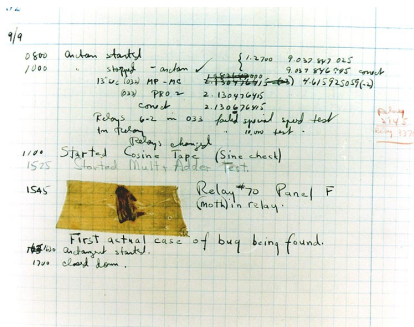 9/9
0800 antan started
1000 " stopped - antan ✓ { 1.2700 9.037 847 025
9.037 846 995 correct
13"uc (032) MP - MC 2.130476415 (-3) 4.615925059(-2)
(033) PRO 2 2.130476415
correct 2.130676415
Relays 6-2 in 033 failed special speed test
in relay " 10.000 test.
Relays changed
Relay
3370
1100 Started Cosine Tape (Sine check)
1525 Started Mult+Adder Test.
1545 Relay #70 Panel F
(moth) in relay.
First actual case of bug being found.
1630 antangent started.
1700 closed down.